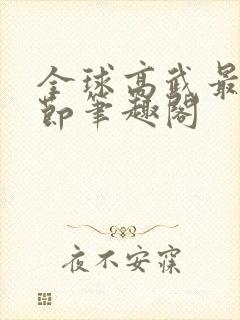 全球高武最
节笔趣阁
夜不安寐